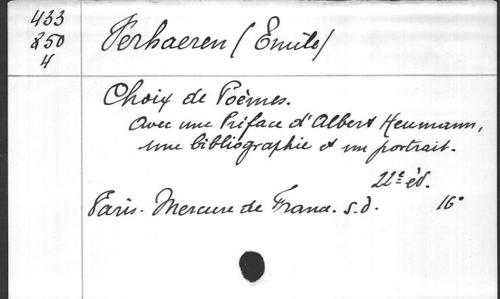 433
250
4
Verhaeren (Emile)
Choix de Poèmes.
Avec une Préface d'Albert Heumann,
une bibliographie et un portrait.
22e éd.
Paris. Mercure de France. s.d. 16°